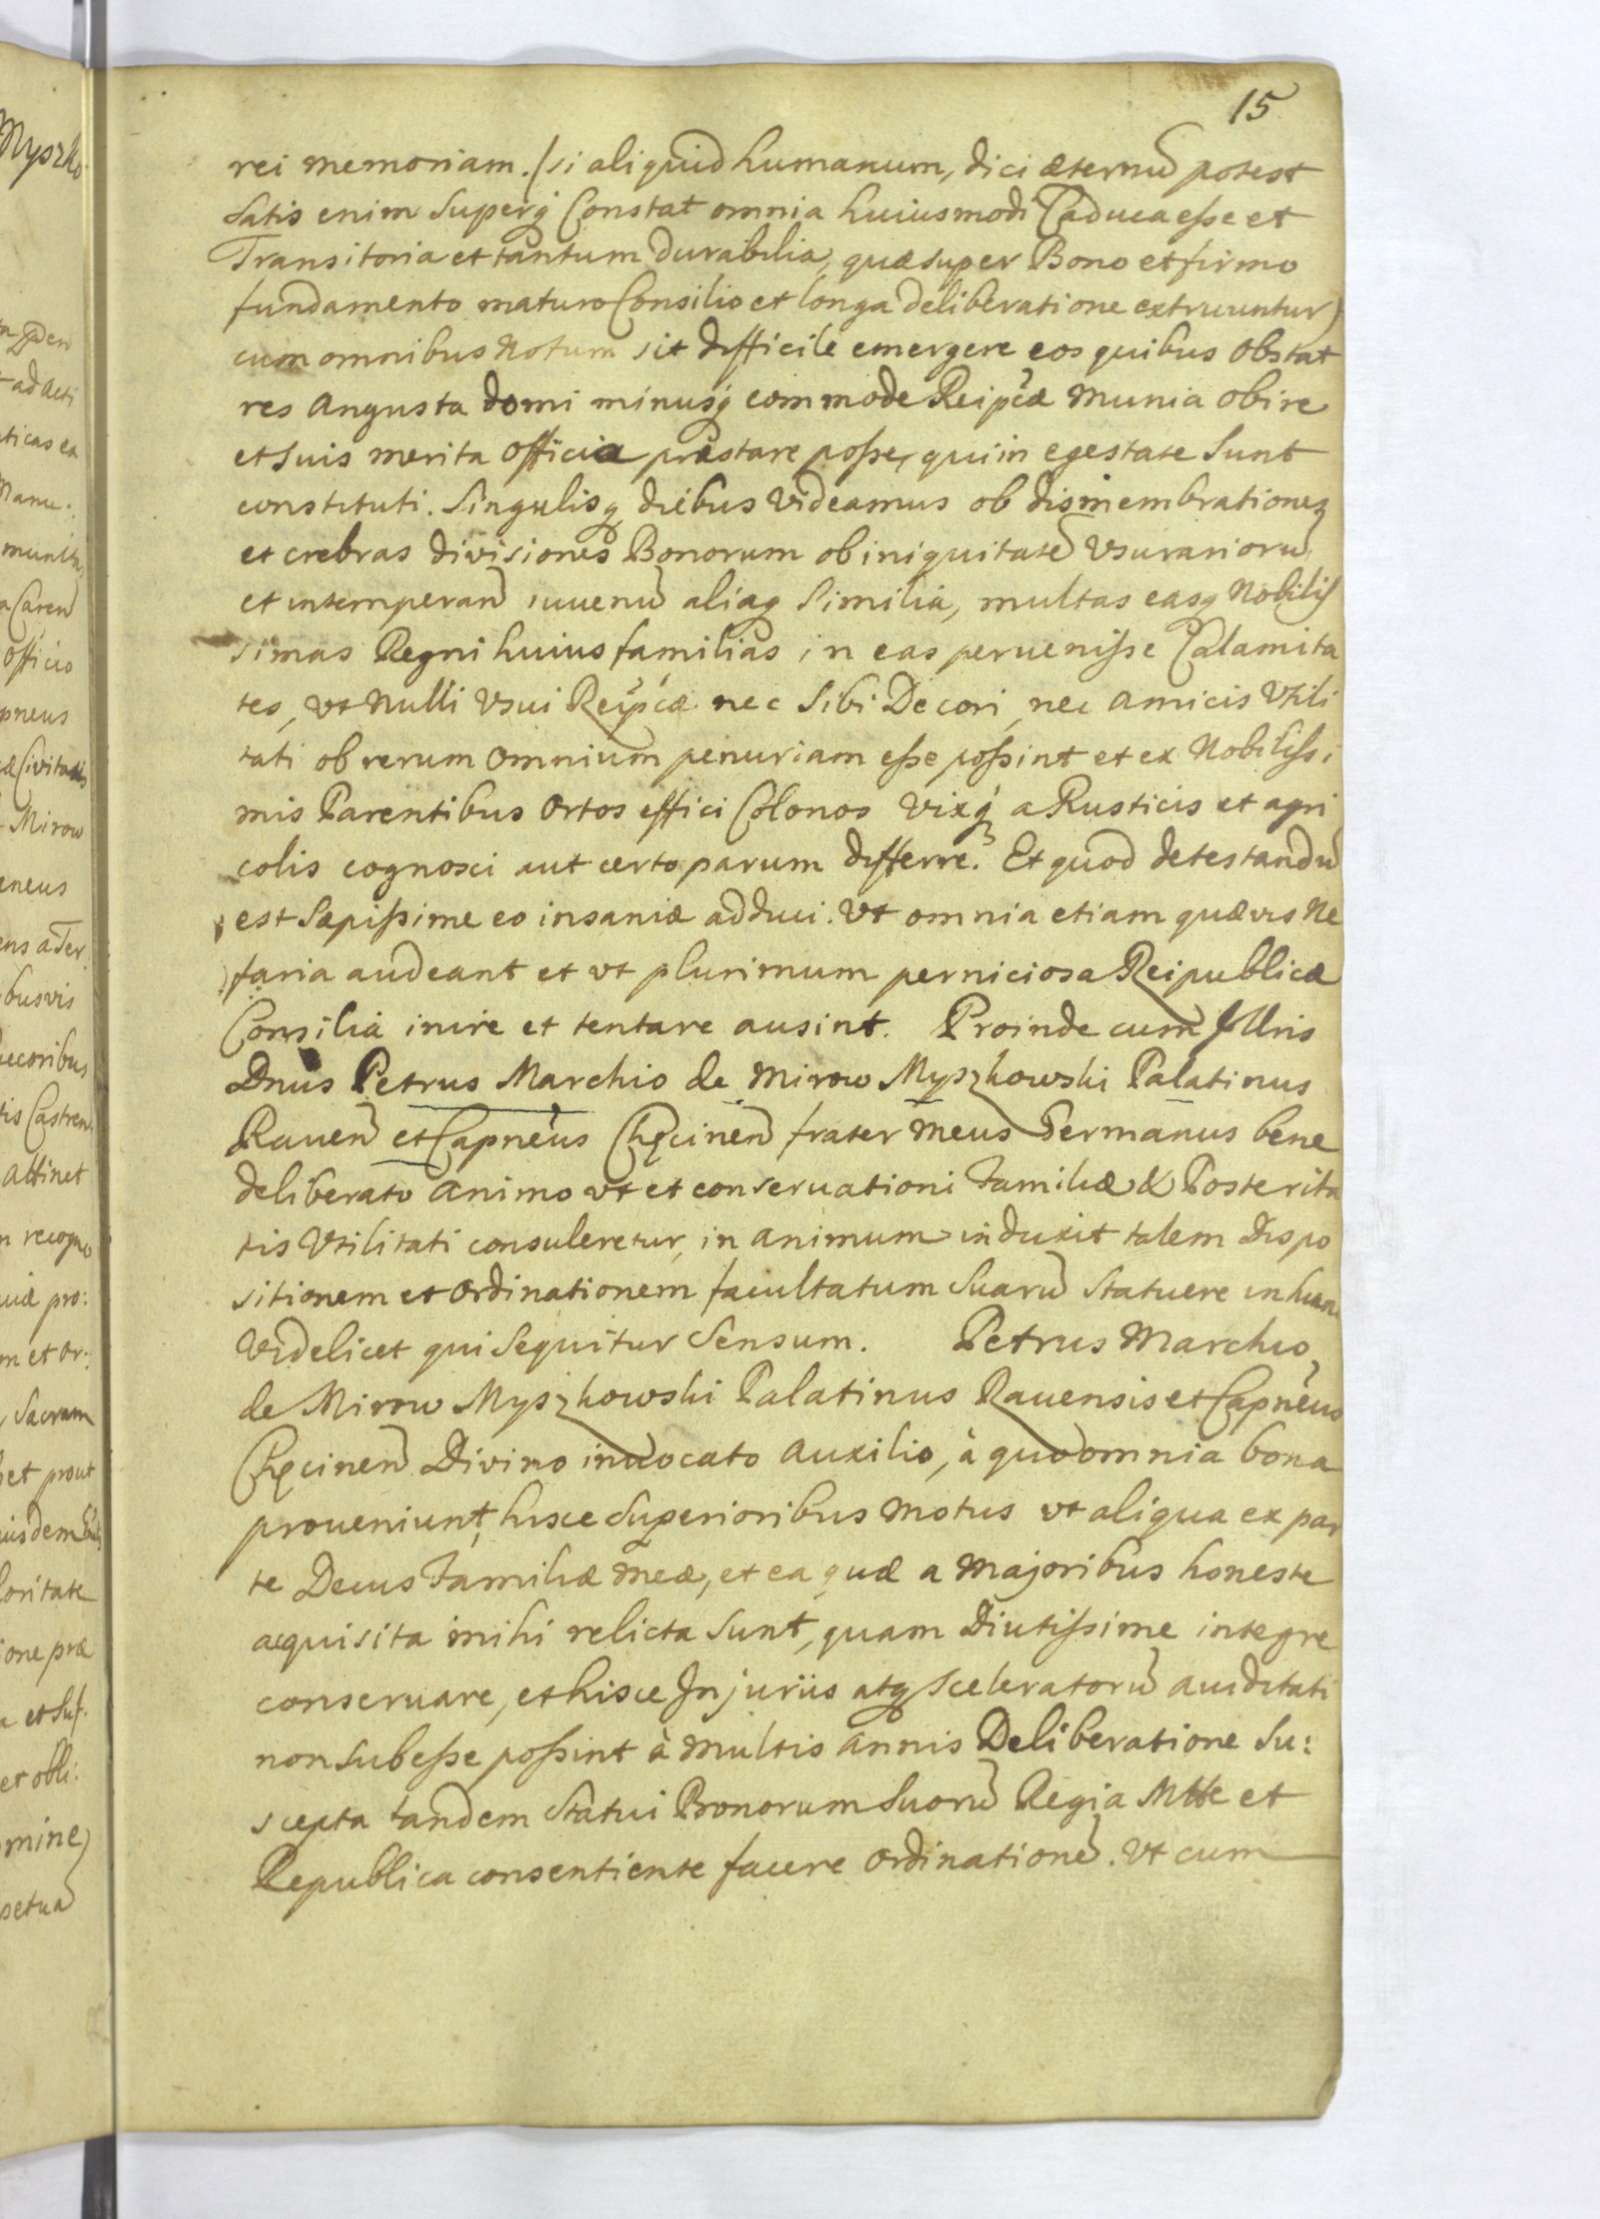 15
rei memoriam. (si aliquid humanum, dici æternũ potest
Satis enim Superq Constat omnia huiusmodi Caduca esse et
Transitoria et tantum durabilia, quæ super Bono et firmo
fundamento maturo Consilio et longa deliberatione extruuntur)
cum omnibus Notum sit difficile emergere eos quibus Obstat
res Angusta domi minusq commode Reipcæ Munia obire
et suis merita Officia præstare posse, qui in egestate Sunt
constituti. Singulisq diebus Videamus ob dismembrationes
et crebras divisiones Bonorum ob iniquitatẽ Vsurariorũ
et intemperan iuuenũ aliaq Similia, multas easq Nobilis
simas Regni huius familias in eas peruenisse Calamita
tes, vt Nulli Vsui Reipcæ nec Sibi Decori, nec Amicis Vtili
tati ob rerum Omnium penuriam esse possint et ex Nobilissi
mis Parentibus Ortos effici Colonos Vixq a Rusticis et agri
colis cognosci aut certo parum differre. Et quod detestandũ
est Sæpissime eo insaniæ adduci. Vt omnia etiam quævis Ne
faria audeant et vt plurimum perniciosa Reipublicæ
Consilia inire et tentare ausint. Proinde cum Illris
Dnus Petrus Marchio de Mirow Myszkowski Palatinus
Rauen et Capneus Chęcinen frater Meus Germanus bene
deliberato Animo vt et conseruationi Familiæ & Posterita
tis Vtilitati consuleretur, in Animum induxit talem Dispo
sitionem et Ordinationem facultatum Suarũ Statuere in hun
Videlicet qui Sequitur Sensum. Petrus Marchio
de Mirow Myszkowski Palatinus Rauensis et Capneus
Chęcinen Divino invocato Auxilio, à quo omnia bona
proueniunt, hisce Superioribus Motus vt aliqua ex par
te Decus Familiæ Meæ, et ea quæ a Majoribus honeste
acquisita mihi relicta Sunt, quam Diutissime integre
conseruare, et hisce Injuriis atq Sceleratorũ auiditati
non Subesse possint à Multis Annis Deliberatione Su:
scepta tandem Statui Bonorum Suorũ Regia Mtte et
Republica consentiente facere Ordinationẽ. Vt cum